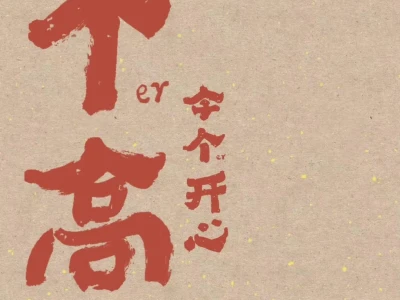 个er高
今个er开心